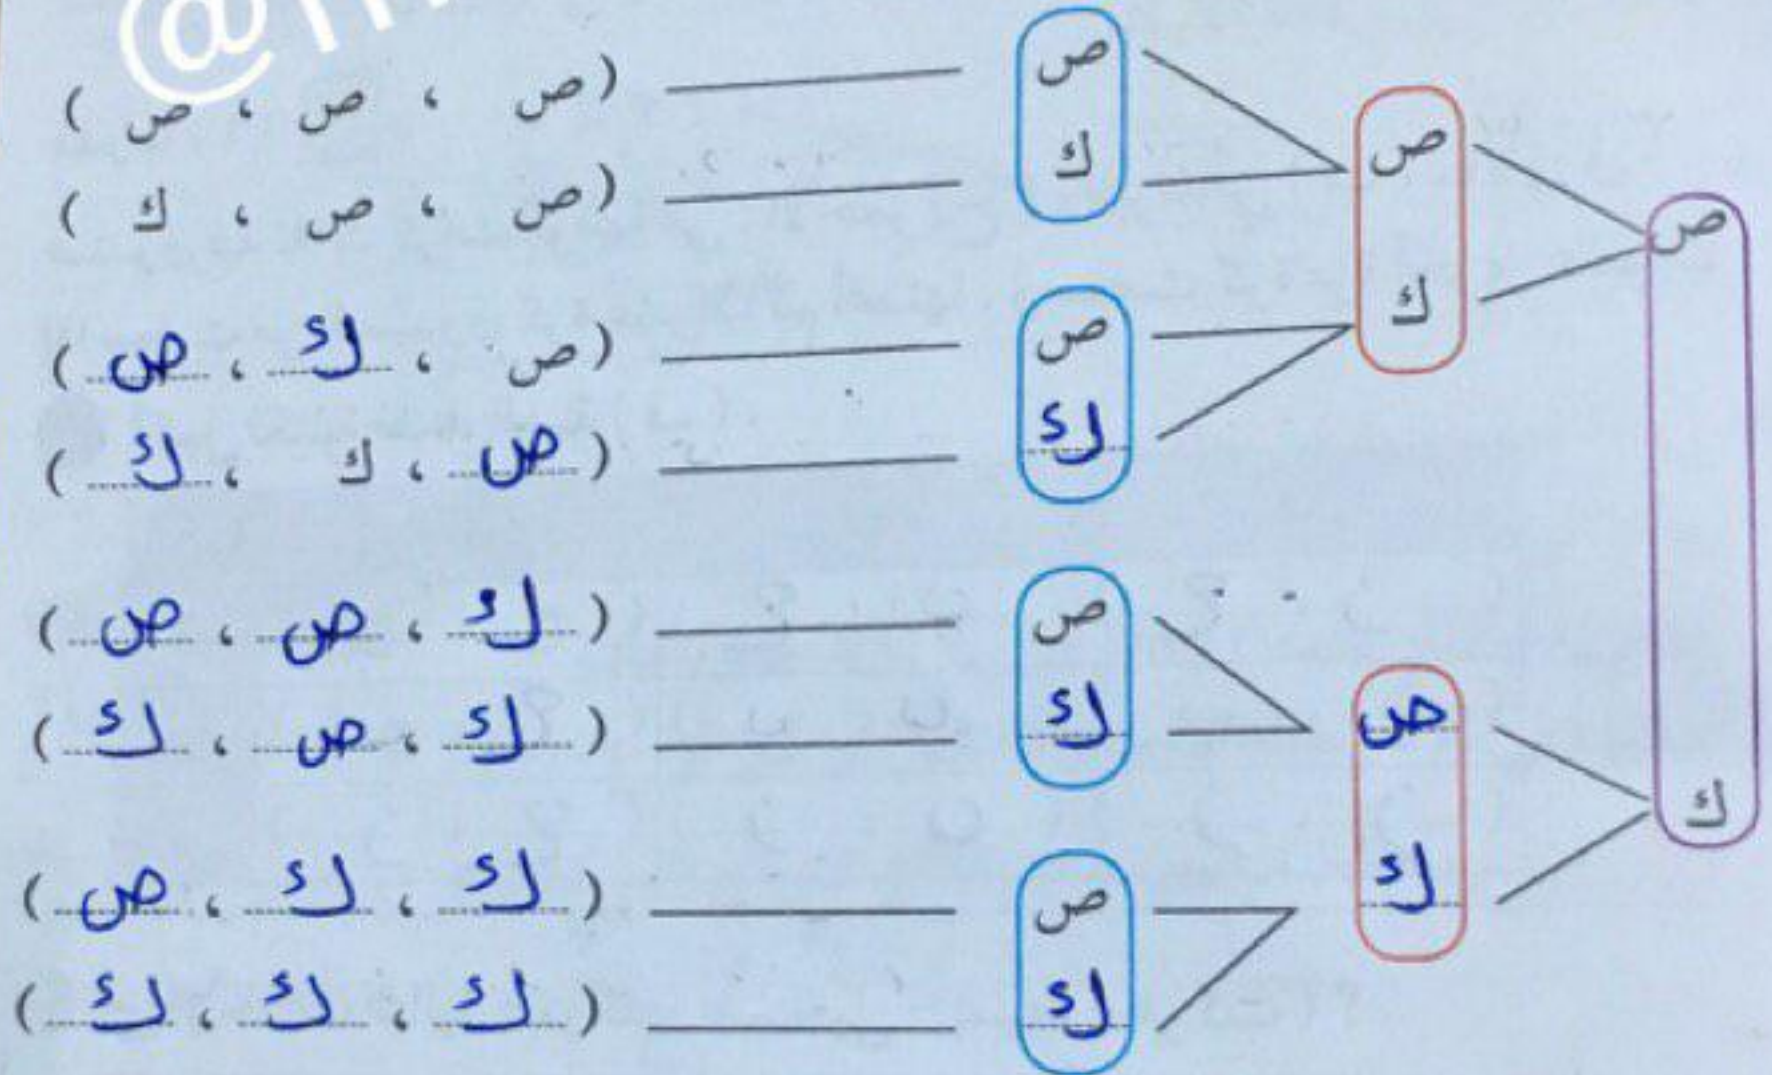 ص
ك
ص
ك
ص
ك
ص
ك
ص
ك
ص
ك
ص
ك
(ص ، ص ، ص)
(ص ، ص ، ك)
(ص ، ك ، ص)
(ص ، ك ، ك)
(ك ، ص ، ص)
(ك ، ص ، ك)
(ك ، ك ، ص)
(ك ، ك ، ك)